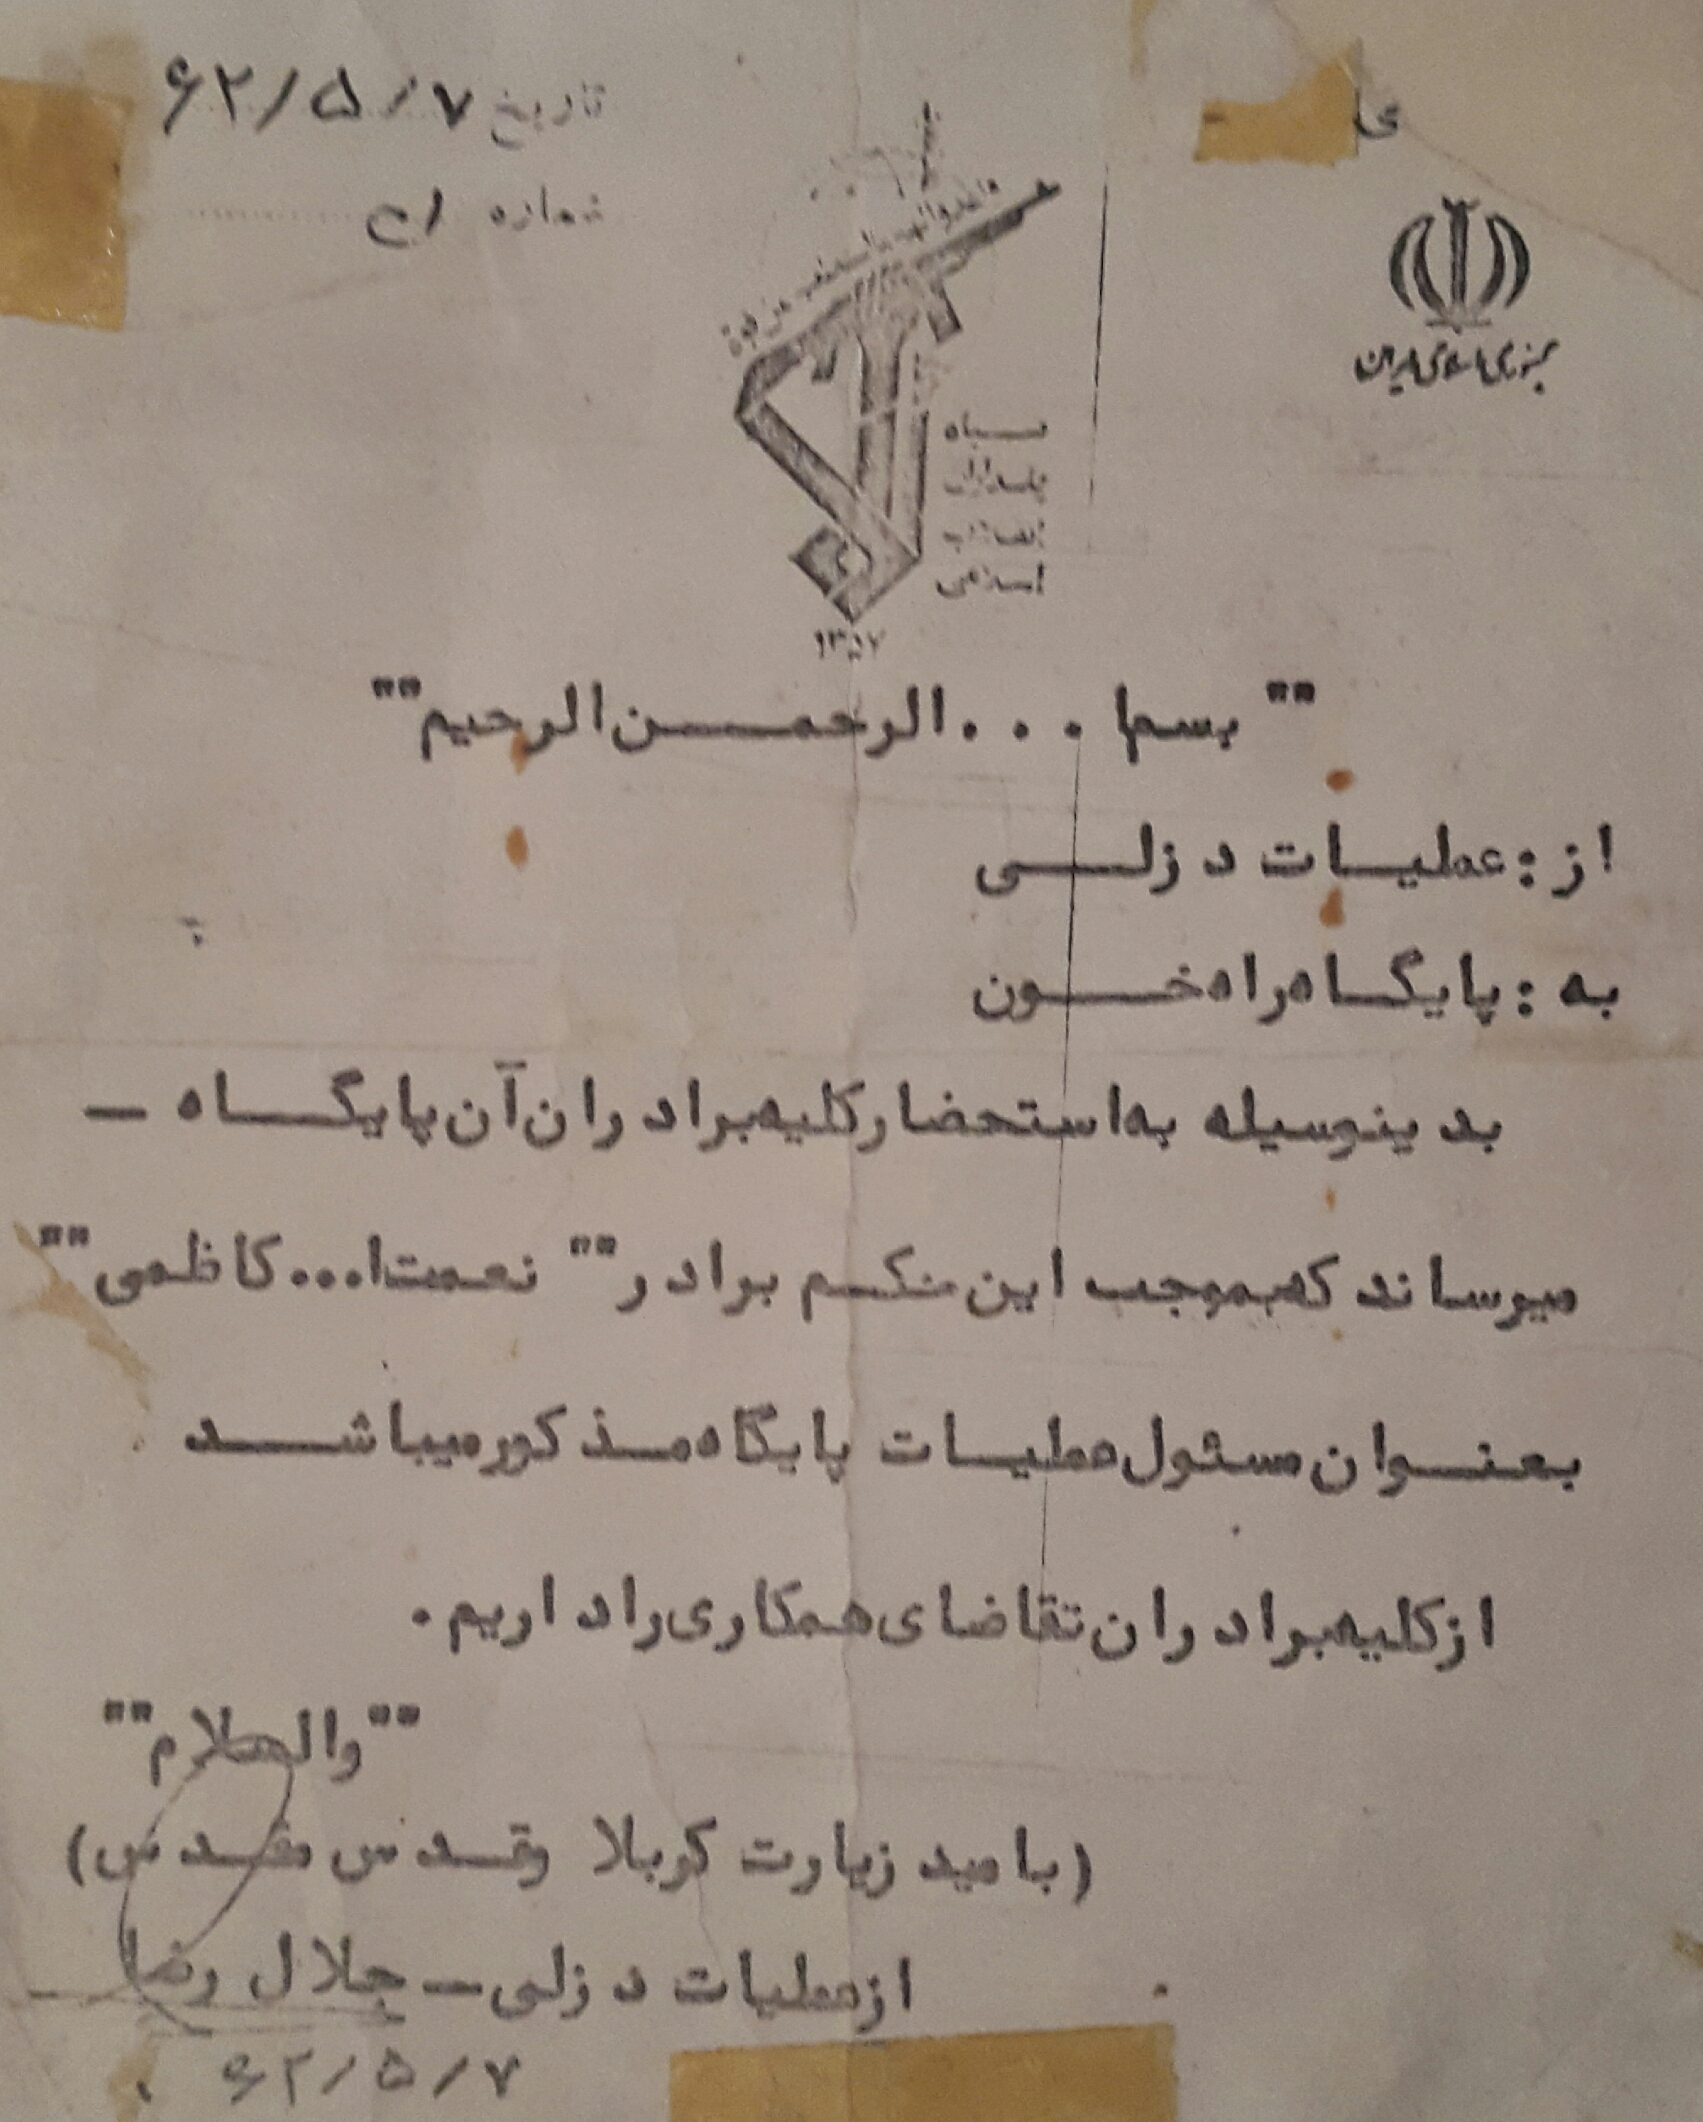 تاریخ ۶۲/۵/۷
شماره
جمهوری اسلامی ایران
سپاه
پاسداران
انقلاب
اسلامی
۱۳۵۷
"" بسم ا . . . الرحمن الرحیم ""
از : عملیات دزلی
به : پایگاه راه خون
بدینوسیله به استحضار کلیه برادران آن پایگاه –
میرساند که بموجب این حکم برادر "" نعمت ا... کاظمی ""
بعنوان مسئول عملیات پایگاه مذکور میباشد
از کلیه برادران تقاضای همکاری را داریم .
"" والسلام ""
(بامید زیارت کربلا وقدس مقدس)
از عملیات دزلی – جلال رضا
۶۲/۵/۷